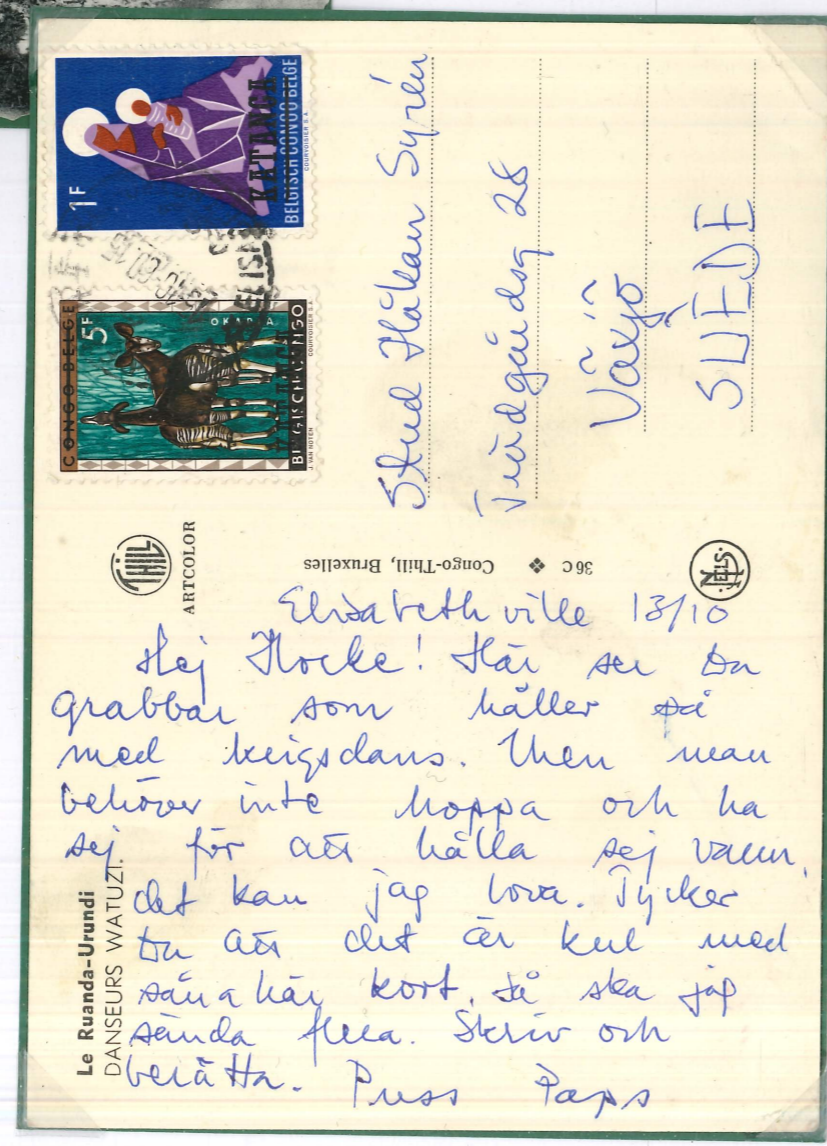 1F
KATANGA
BELGISCH CONGO BELGE
COURVOISIER S.A.
CONGO BELGE
5F
OKAPIA
KATANGA
BELGISCH CONGO
J. VAN NOTEN
COURVOISIER S.A.
Stud Håkan Syrén
Trädgårdsg 28
Växjö
SUÈDE
THILL
ARTCOLOR
36 C ❖ Congo-Thill, Bruxelles
NELS
Elisabethville 13/10
Hej Hocke! Här ser Du
grabbar som håller på
med krigsdans. Men man
behöver inte hoppa och ha
sej för att hålla sej varm,
det kan jag lova. Tycker
Du att det är kul med
såna här kort, så ska jag
sända flera. Skriv och
berätta. Puss Paps
Le Ruanda-Urundi
DANSEURS WATUZI.